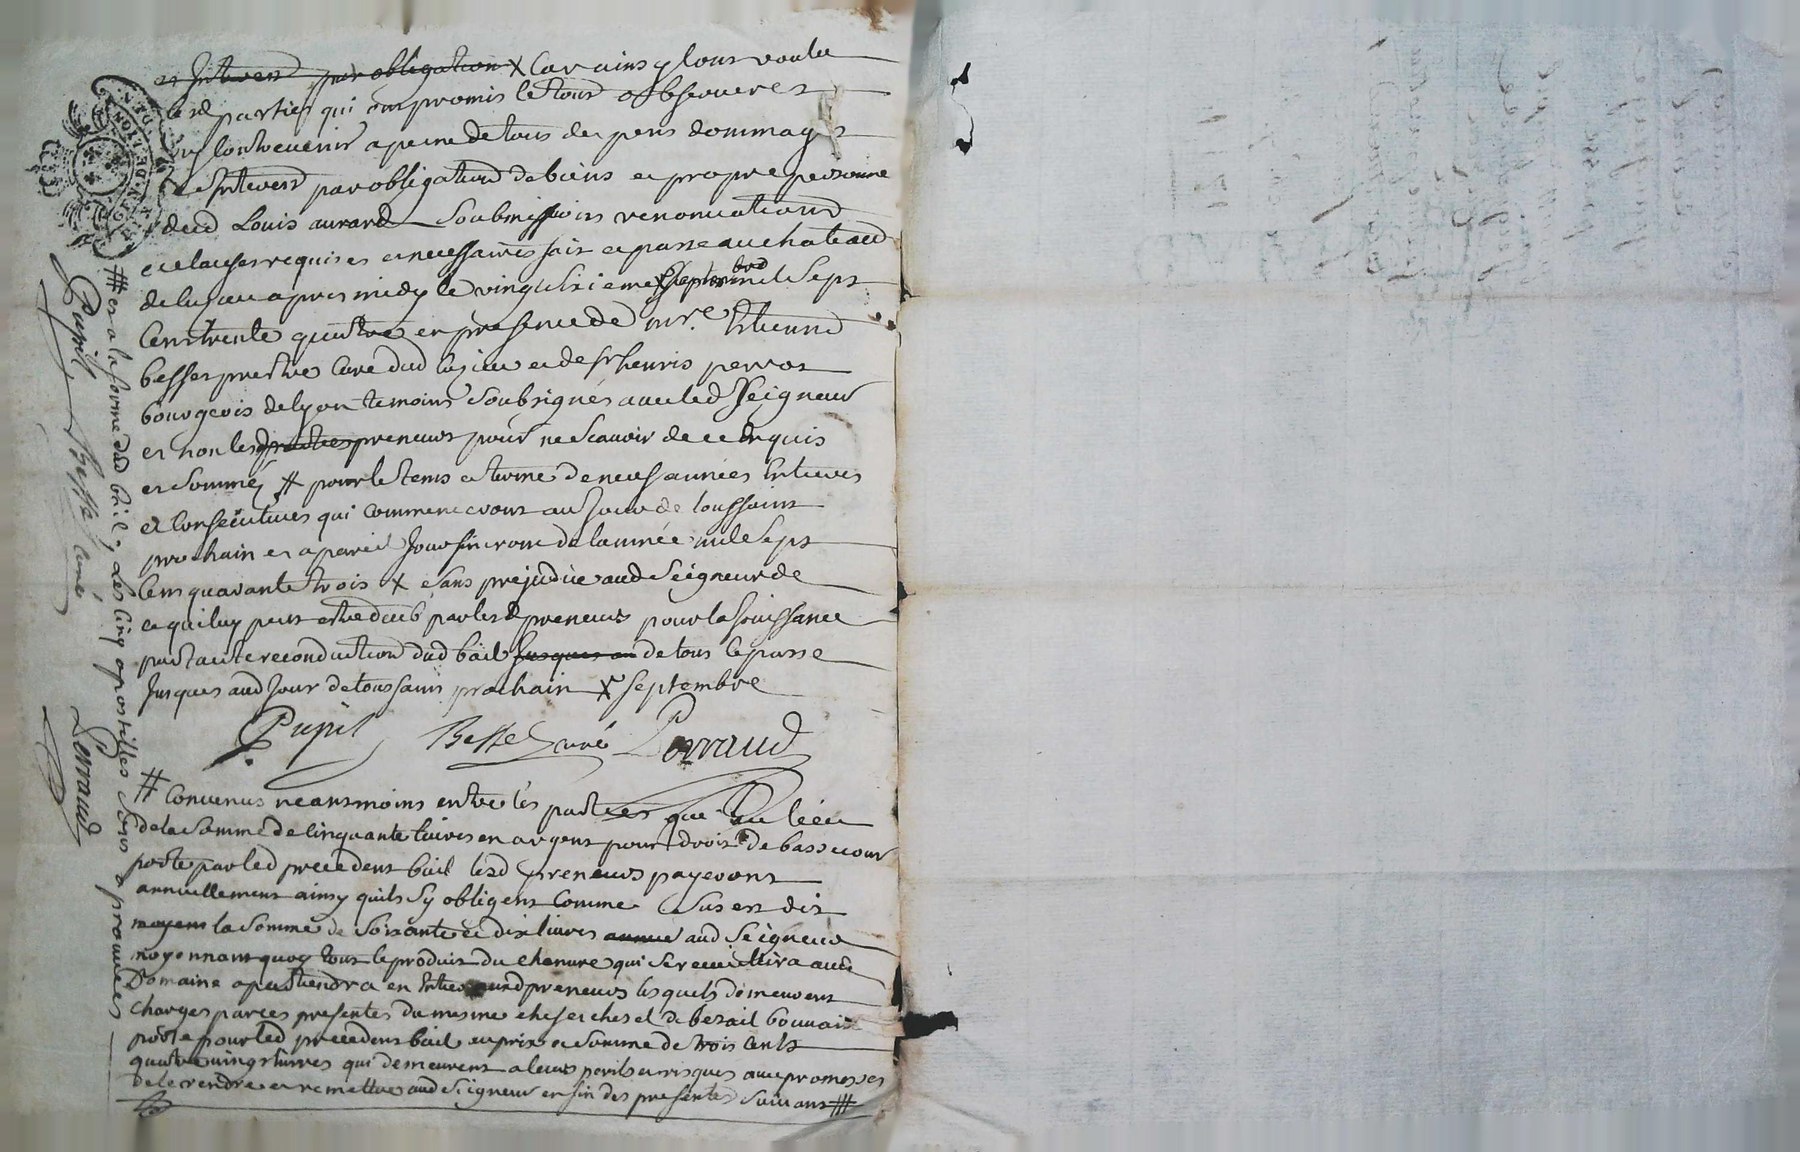 et Interest par obligation X Car ainsy lont voulu
lesd parties qui ont promis le tout observer et
ny Contrevenir a peine de tous depens dommages
et Interest par obligation de biens et propre personne
dud Louis Soubmissions renonciations
et clauses requises et necessaires fait et passe au chateau
de apres midy le vingt sixieme X septembre mil Sept
Cent trente quattre en presence de mre. Etienne
besse prestre Curé dud et de sr henris perrot
bourgeois de lyon temoins Soubsignés avec led Seigneur
et non lesd parties preneurs pour ne Scavoir de ce Enquis
et Sommés # pour le tems et terme de neuf années Entieres
et Consecutives qui commenceront au Jour de toussaint
prochain et a pareil Jour finiront de lannée mil Sept
Cent quarante trois X et Sans prejudice aud Seigneur de
ce qui luy peut estre deub par lesd preneurs pour la Jouissance
par tacite reconduction dud bail Jusques au de tout le passe
Jusques aud Jour de toussaint prochain X Septembre
Pupil Besse Curé Perraud
# Convenus neansmoins entre les parties que au lieu
de la Somme de Cinquante livres en argent pour droit de bassecour
porté par led precedent bail lesd preneurs payeront
annuellement ainsy quils Sy obligent Comme Sus est dit
moyens la Somme de Soixante et dix livres aud Seigneur
moyennant quoy tout le produit du chenure qui Se recueillira aud
Domaine apartiendra en Entier auxd preneurs lesquels demeurent
charges par ces presentes du mesme et de betail bouvait
porté pour led precedent bail au prix et Somme de trois Cents
quattre vingt livres qui demeurent a leurs perils et risques avec promesses
de le rendre et remettre aud Seigneur en fin des presentes Suivant #
# et a la forme dud bail, Les Cinq apostilles Sont aprouvées
Pupil Besse Curé Perraud